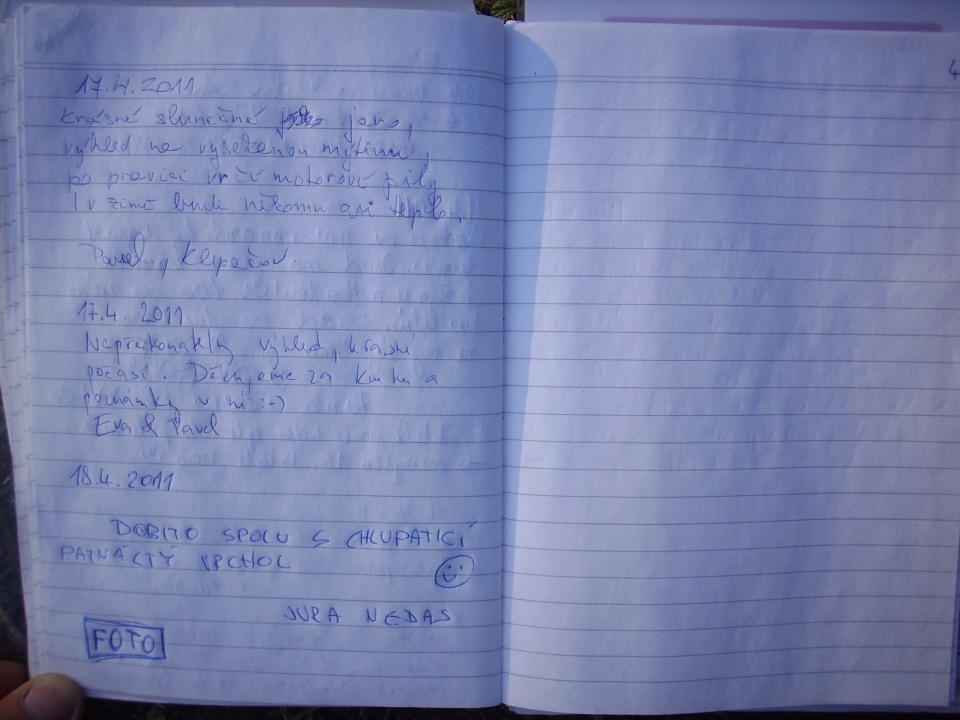 17.4.2011
Krásné slunečné jaro,
výhled na vysekanou mýtinu,
po pravici vrčí motorové pily.
I v zimě bude někomu asi teplo.
Pavel, Klepačov
17.4. 2011
Nepřekonatelný výhled, krásné
počasí. Děkujeme za knihu a
poznámky v ní :-)
Eva & Pavel
18.4.2011
DOBITO SPOLU S CHLUPATICÍ
PATNÁCTÝ VRCHOL
JURA NEDAS
FOTO
4